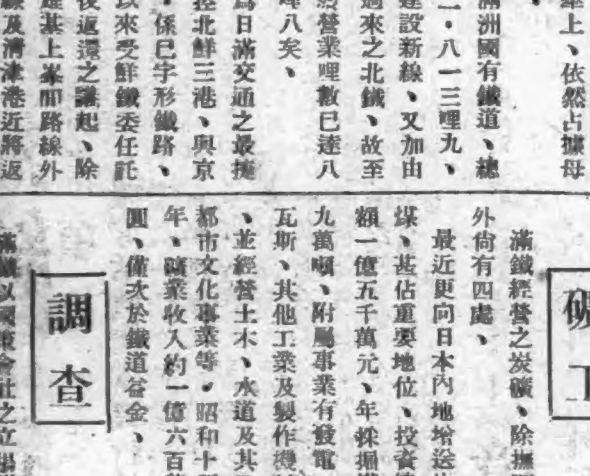 上、依然占據母
滿洲國有鐵道、總
一・八一三哩九、
建設新線、又加由
過來之北鐵、故至
營業哩數已達八
哩八矣、
爲日滿交通之最捷
控北鮮三港、與京
・係巳字形鐵路、
以來受鮮鐵委任託
後返還之議起、除
雄基上峯間路線外
線及淸津港近將返
礦工
滿鐵經營之炭礦、除撫
外尙有四處、
最近更向日本內地增送
煤、甚佔重要地位、投資
額一億五千萬元、年採掘
九萬噸、附屬事業有發電
瓦斯、其他工業及製作機
、並經營土木、水道及其
都市文化事業等・昭和十
年、礦業收入約一億六百
圓、僅次於鐵道益金、
調査
滿鐵以國策會社之立場